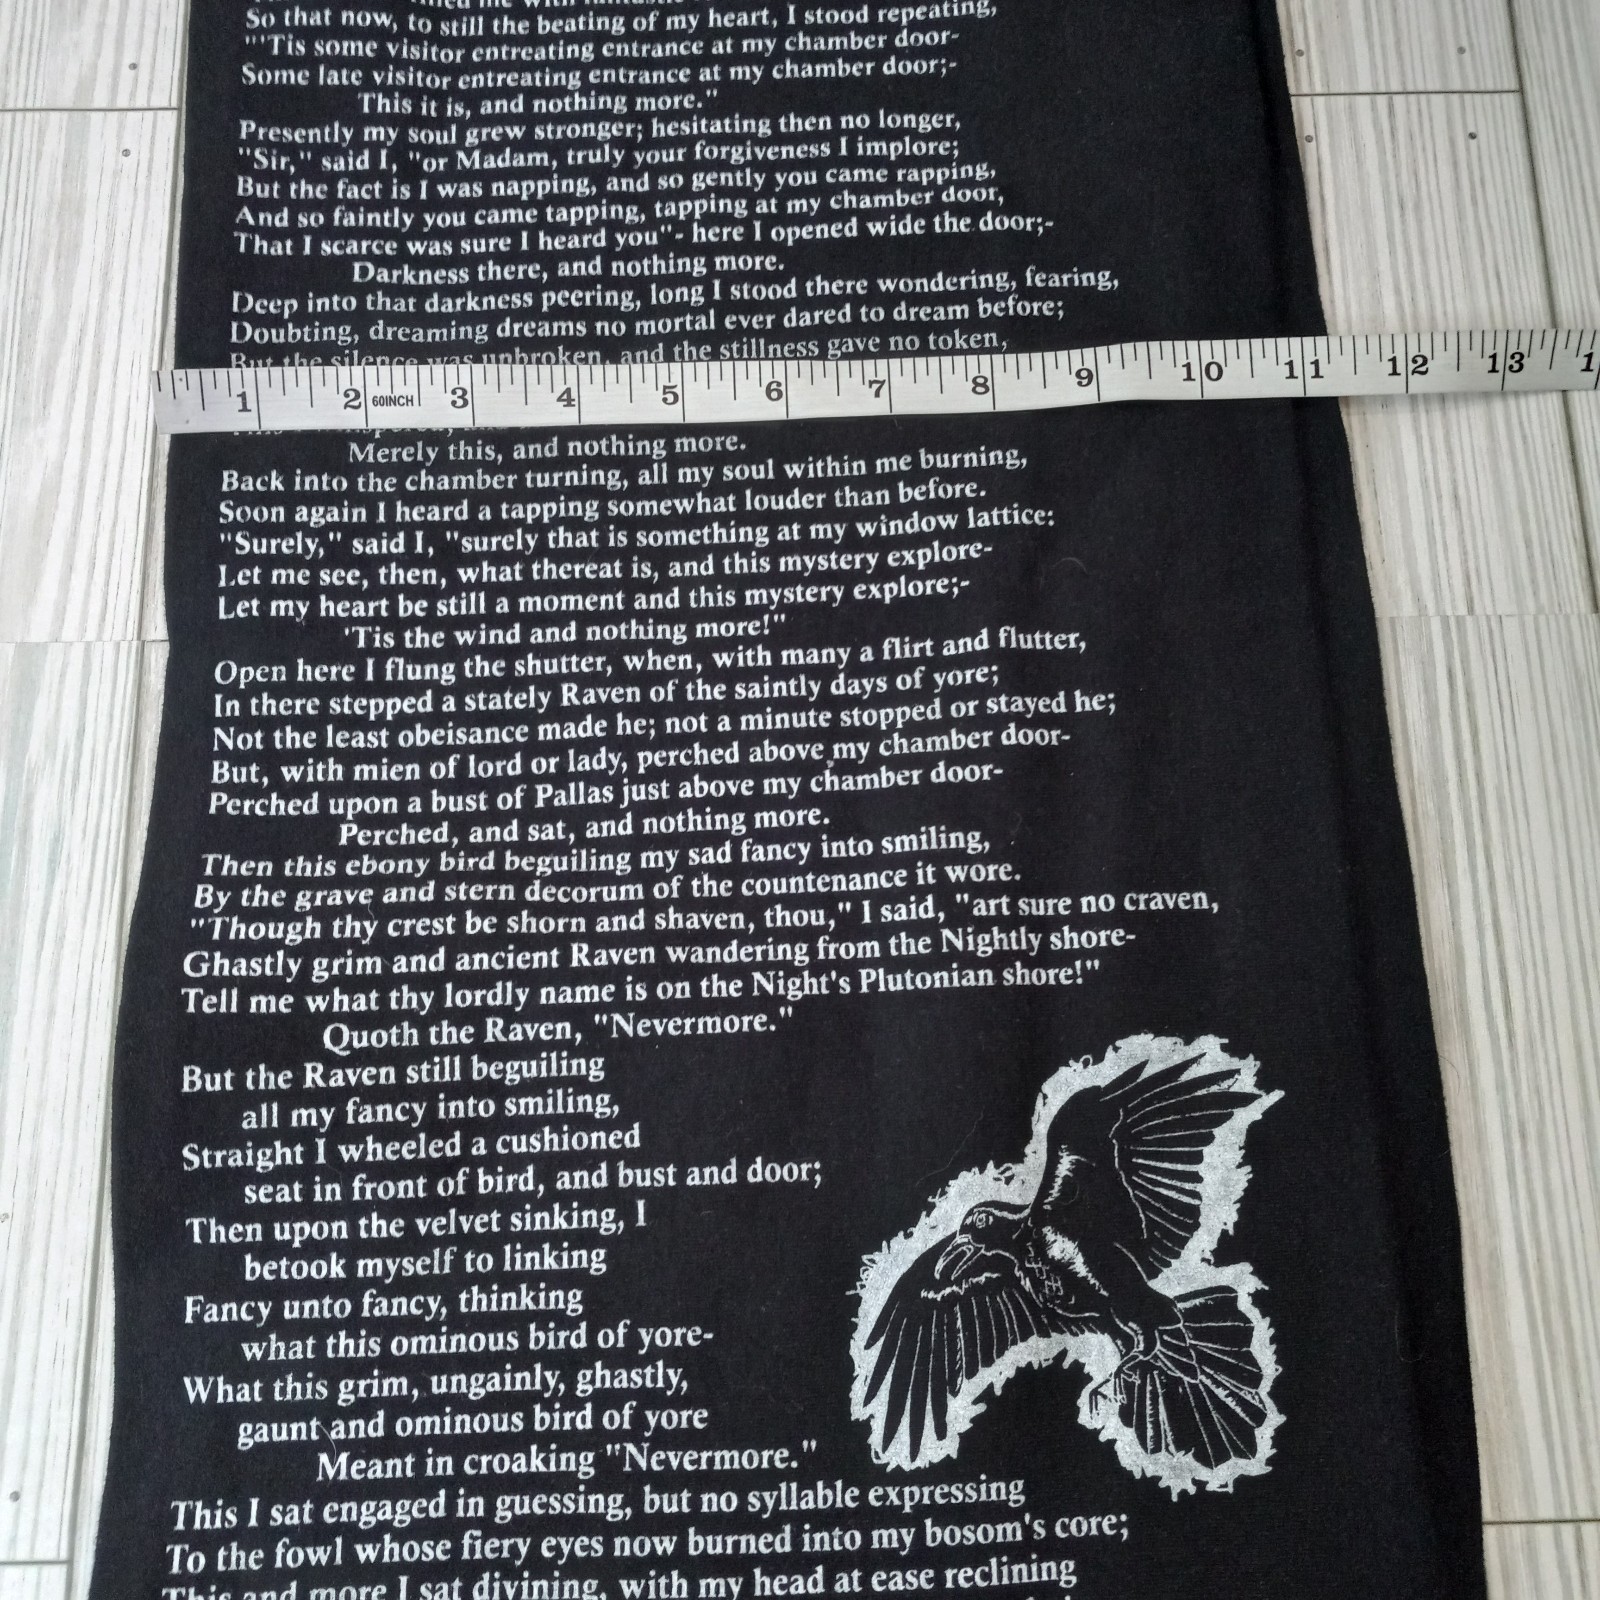 So that now, to still the beating of my heart, I stood repeating,
"'Tis some visitor entreating entrance at my chamber door-
Some late visitor entreating entrance at my chamber door;-
This it is, and nothing more."
Presently my soul grew stronger; hesitating then no longer,
"Sir," said I, "or Madam, truly your forgiveness I implore;
But the fact is I was napping, and so gently you came rapping,
And so faintly you came tapping, tapping at my chamber door,
That I scarce was sure I heard you"- here I opened wide the door;-
Darkness there, and nothing more.
Deep into that darkness peering, long I stood there wondering, fearing,
Doubting, dreaming dreams no mortal ever dared to dream before;
But the silence was unbroken, and the stillness gave no token,
1 2 60INCH 3 4 5 6 7 8 9 10 11 12 13 1
Merely this, and nothing more.
Back into the chamber turning, all my soul within me burning,
Soon again I heard a tapping somewhat louder than before.
"Surely," said I, "surely that is something at my window lattice:
Let me see, then, what thereat is, and this mystery explore-
Let my heart be still a moment and this mystery explore;-
'Tis the wind and nothing more!"
Open here I flung the shutter, when, with many a flirt and flutter,
In there stepped a stately Raven of the saintly days of yore;
Not the least obeisance made he; not a minute stopped or stayed he;
But, with mien of lord or lady, perched above my chamber door-
Perched upon a bust of Pallas just above my chamber door-
Perched, and sat, and nothing more.
Then this ebony bird beguiling my sad fancy into smiling,
By the grave and stern decorum of the countenance it wore.
"Though thy crest be shorn and shaven, thou," I said, "art sure no craven,
Ghastly grim and ancient Raven wandering from the Nightly shore-
Tell me what thy lordly name is on the Night's Plutonian shore!"
Quoth the Raven, "Nevermore."
But the Raven still beguiling
all my fancy into smiling,
Straight I wheeled a cushioned
seat in front of bird, and bust and door;
Then upon the velvet sinking, I
betook myself to linking
Fancy unto fancy, thinking
what this ominous bird of yore-
What this grim, ungainly, ghastly,
gaunt and ominous bird of yore
Meant in croaking "Nevermore."
This I sat engaged in guessing, but no syllable expressing
To the fowl whose fiery eyes now burned into my bosom's core;
This and more I sat divining, with my head at ease reclining